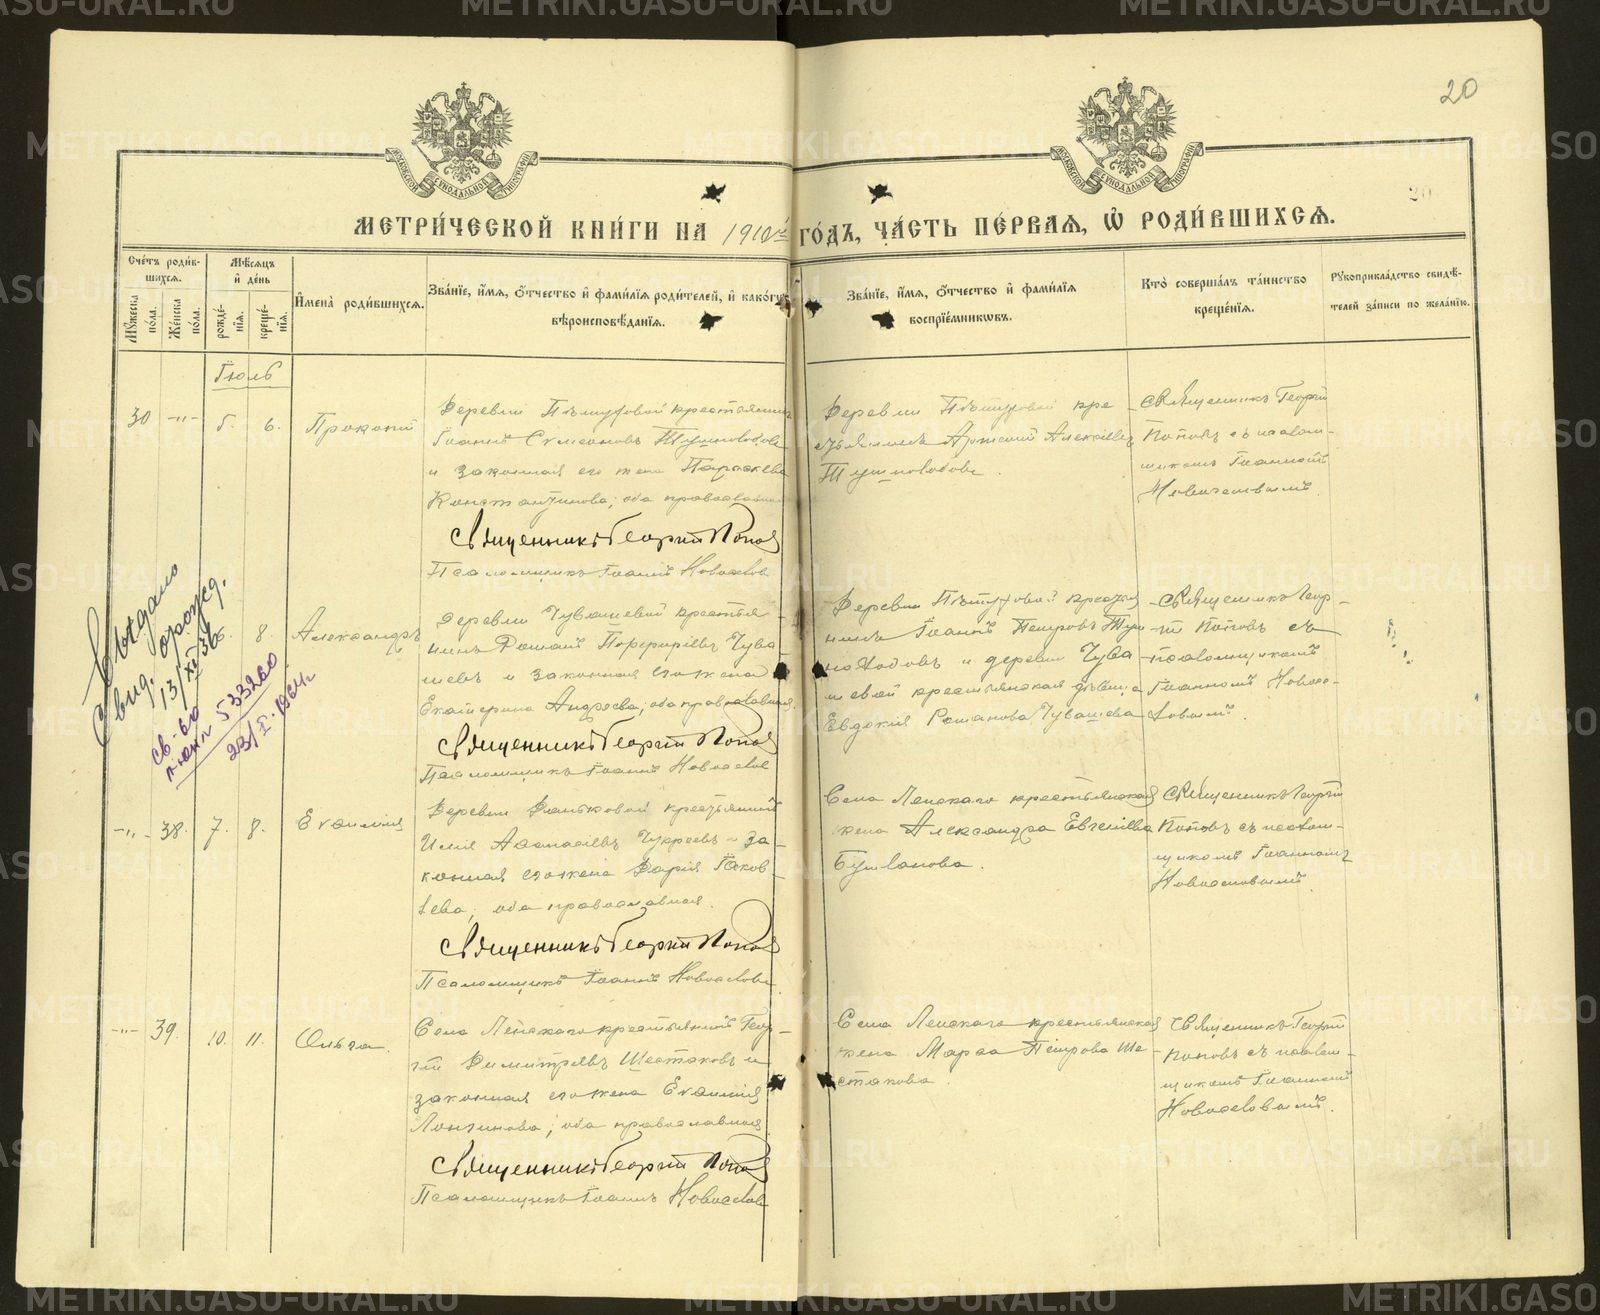 20
МЕТРИ́ЧЕСКОЙ КНИ́ГИ НА 1910й ГО́ДЪ, ЧА́СТЬ ПЕ́РВАЯ, Ѽ РОДИ́ВШИХСѦ.
Сче́тъ роди́в-
шихсѧ.
Мꙋ́жеска по́ла.
Же́нска по́ла.
Мѣ́сѧцъ
и҆ де́нь
рожде́-
нїѧ.
креще́-
нїѧ.
И҆мена̀ роди́вшихсѧ.
Зва́нїе, и҆́мѧ, ѻ҆́тчество и҆ фами́лїѧ роди́телей, и҆ како́гѡ
вѣроисповѣ́данїѧ.
Зва́нїе, и҆́мѧ, ѻ҆́тчество и҆ фами́лїѧ
воспрїе́мникѡвъ.
Кто̀ соверша́лъ та́инство
креще́нїѧ.
Рꙋкоприкла́дство свидѣ́-
телей за́писи по жела́нїю.
Іюль
30 -"- 5. 6. Прокопій
Деревни Пѣтуховой крестьянинъ
Іоаннъ Симеоновъ
и законная его жена Параскева
Константинова; оба православные
Священникъ Георгій Поповъ
Псаломщикъ Іоаннъ Новоселовъ
Деревни Пѣтуховой кре-
стьянинъ Алексіевъ
Священникъ Георгій
Поповъ съ псалом-
щикомъ Іоанномъ
Новоселовымъ.
Выдано
свид. о рожд.
13/XI 36
св-во
5333260
23/I-1964г
8. Александръ
Деревни Чувашевой крестья-
нинъ Романъ Порфиріевъ Чува-
шевъ и законная его жена
Екатерина Андреева; оба православные
Священникъ Георгій Поповъ
Псаломщикъ Іоаннъ Новоселовъ
Деревни Пѣтуховой крестья-
нинъ Іоаннъ Петровъ
и деревни Чува-
шевой крестьянская дѣвица
Евдокія Романова Чувашева
Священникъ Геор-
гій Поповъ съ
псаломщикомъ
Іоанномъ Новосе-
ловымъ.
-"- 38. 7. 8. Евѳимія
Деревни Ваньковой крестьянинъ
Илія Аѳанасіевъ и за-
конная его жена Дарія Іаков-
лева; оба православные.
Священникъ Георгій Поповъ
Псаломщикъ Іоаннъ Новоселовъ
Села Ленскаго крестьянская
жена Александра Евгеніева
Священникъ Георгій
Поповъ съ псалом-
щикомъ Іоанномъ
Новоселовымъ.
-"- 39. 10. 11. Ольга.
Села Ленскаго крестьянинъ Геор-
гій Димитріевъ Шестаковъ и
законная его жена Евѳимія
Лонгинова; оба православные.
Священникъ Георгій Поповъ
Псаломщикъ Іоаннъ Новоселовъ
Села Ленскаго крестьянская
жена Марѳа Петрова Ше-
стакова.
Священникъ Георгій
Поповъ съ псалом-
щикомъ Іоанномъ
Новоселовымъ.
METRIKI.GASO-URAL.RU